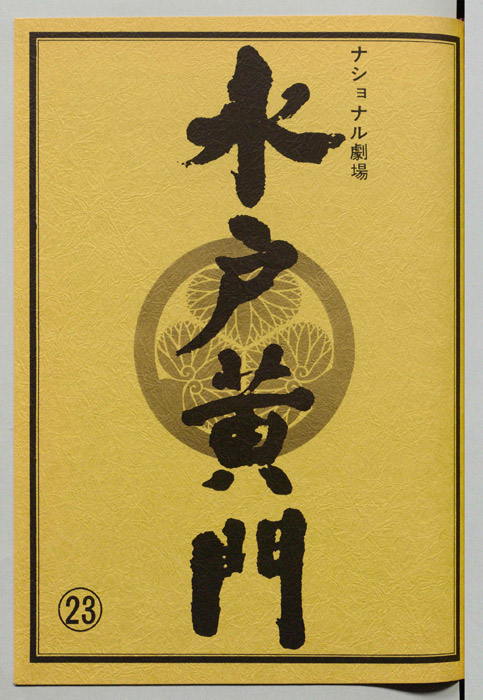 ナショナル劇場
水戸黄門
23